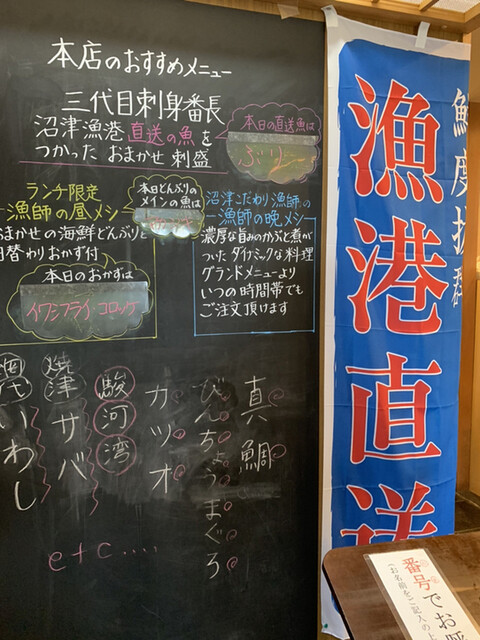 本店のおすすめメニュー
三代目刺身番長
沼津漁港直送の魚を
つかった おまかせ 刺盛
本日の直送魚は
ぶり
ランチ限定
漁師の昼メシ
おまかせの海鮮どんぶりと
日替わりおかず付
本日どんぶりの
メインの魚は
本日のおかずは
イワシフライ・コロッケ
沼津こだわり漁師の
漁師の晩メシ
濃厚な旨みのかぶと煮が
ついたダイナミックな料理
グランドメニューより
いつの時間帯でも
ご注文頂けます
真鯛
びんちょうまぐろ
カツオ
駿河湾
焼津サバ
いわし
etc....
鮮度抜群
漁港直送
番号でお呼
(お名前をご記入の